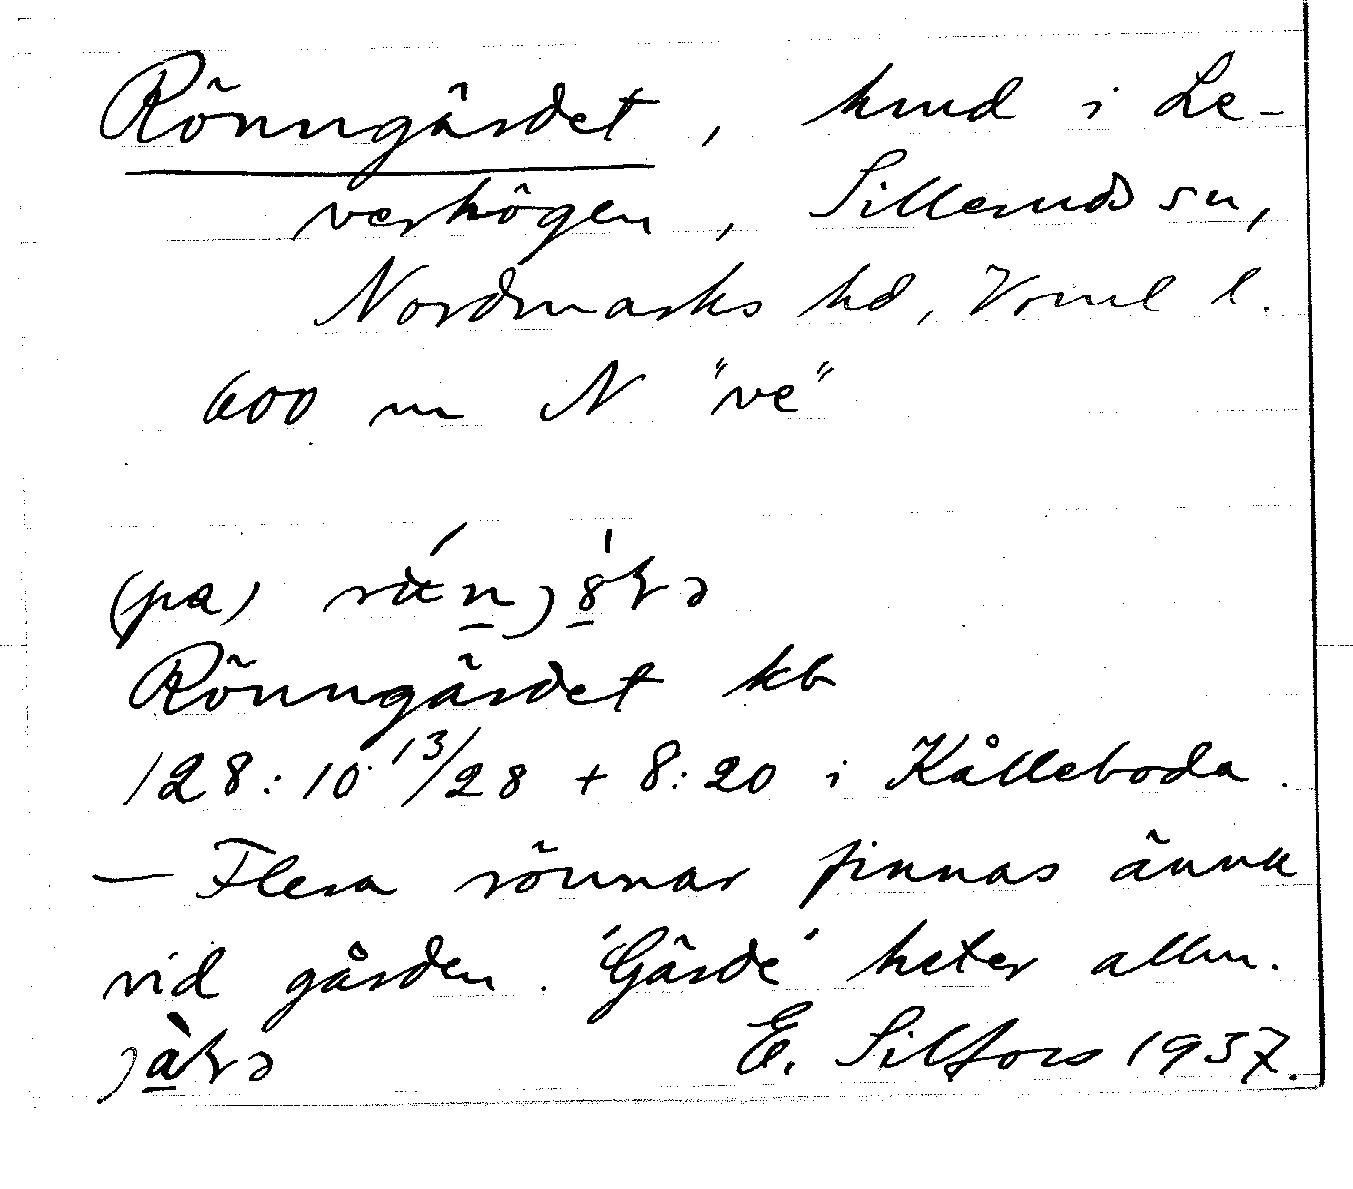 Rönngärdet, hmd i Le-
verhögen, Silleruds sn,
Nordmarks hd, Vrml l.
600 m N "ve"
(pa)
Rönngärdet kb
128:10 13/28 + 8:20 i Kålleboda.
— Flera rönnar finnas ännu
vid gården. 'Gärde' heter allm.
E. Silfors 1937.